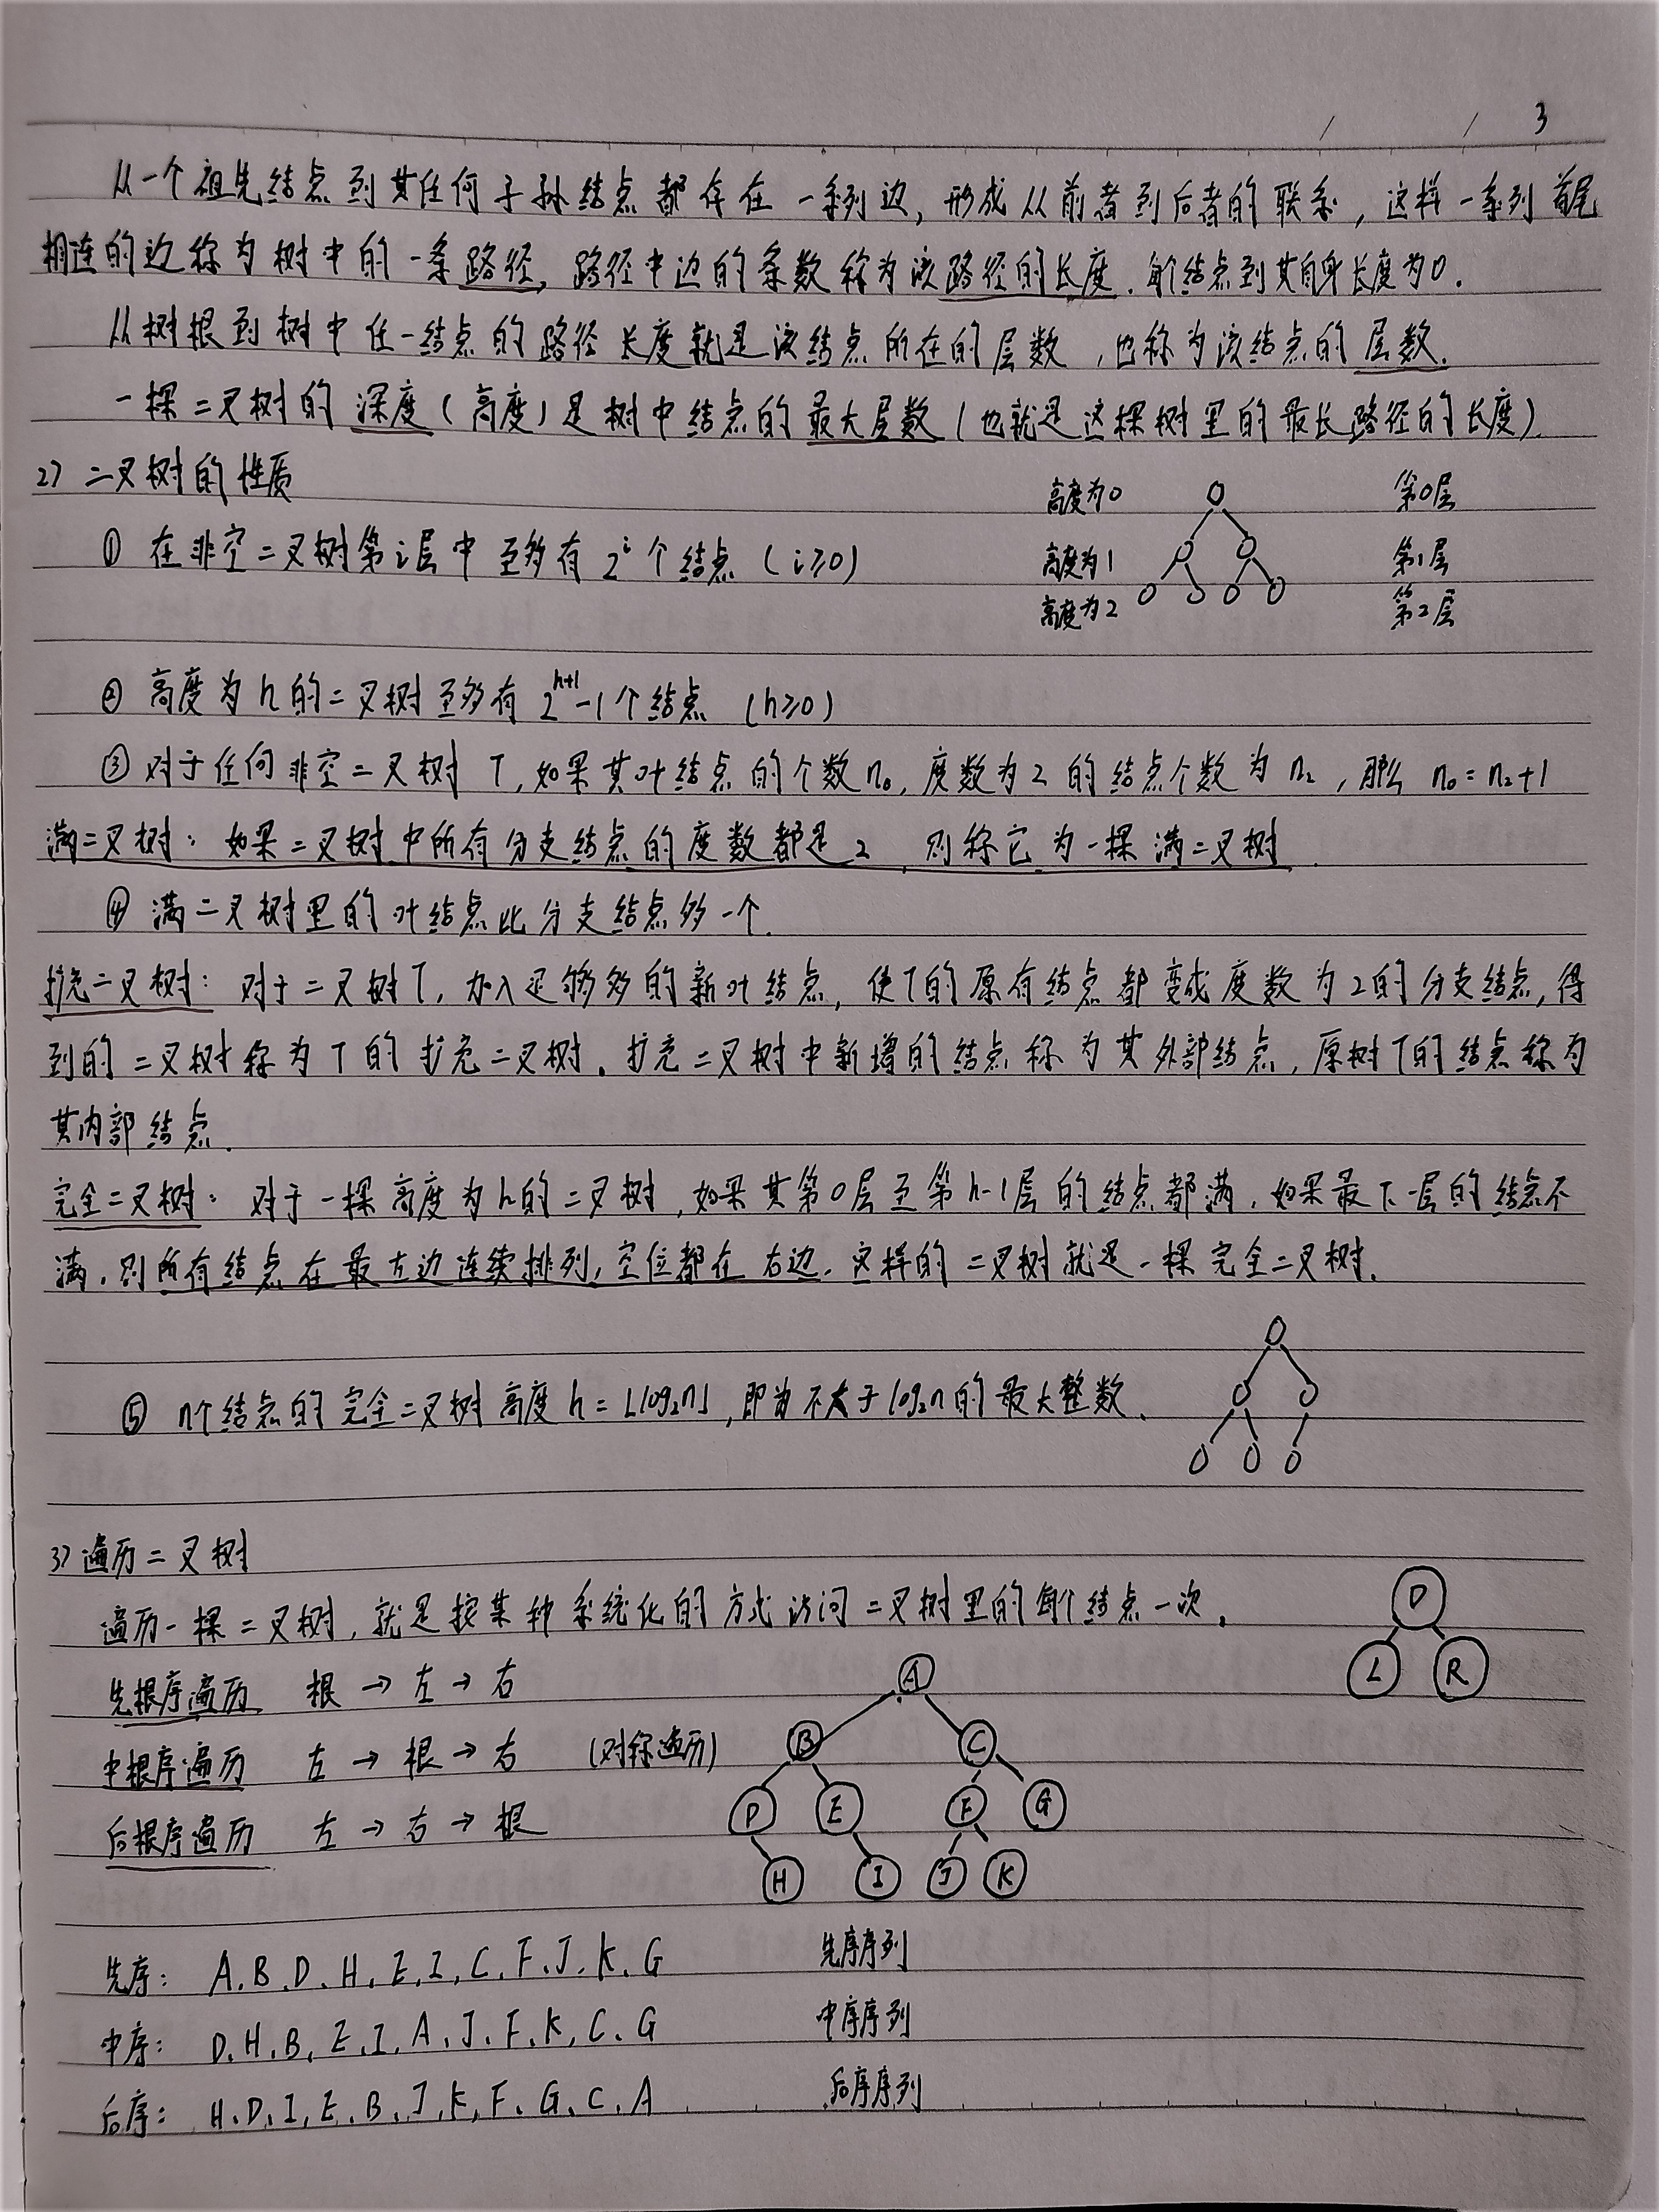 3
从一个祖先结点到其任何子孙结点都存在一系列边,形成从前者到后者的联系,这样一系列首尾
相连的边称为树中的一条路径,路径中边的条数称为该路径的长度.每个结点到其自身长度为0.
从树根到树中任一结点的路径长度就是该结点所在的层数,也称为该结点的层数.
一棵二叉树的深度(高度)是树中结点的最大层数(也就是这棵树里的最长路径的长度).
2) 二叉树的性质
高度为0 第0层
① 在非空二叉树第i层中至多有2^i个结点 (i≥0)
高度为1 第1层
高度为2 第2层
② 高度为h的二叉树至多有2^{h+1}-1个结点 (h≥0)
③ 对于任何非空二叉树T,如果其叶结点的个数n₀,度数为2的结点个数为n₂,那么 n₀=n₂+1
满二叉树:如果二叉树中所有分支结点的度数都是2,则称它为一棵满二叉树.
④ 满二叉树里的叶结点比分支结点多一个.
扩充二叉树:对于二叉树T,加入足够多的新叶结点,使T的原有结点都变成度数为2的分支结点,得
到的二叉树称为T的扩充二叉树.扩充二叉树中新增的结点称为其外部结点,原树T的结点称为
其内部结点.
完全二叉树:对于一棵高度为h的二叉树,如果其第0层至第h-1层的结点都满.如果最下一层的结点不
满,则所有结点在最左边连续排列,空位都在右边.这样的二叉树就是一棵完全二叉树.
⑤ n个结点的完全二叉树高度h=⌊log₂n⌋,即为不大于log₂n的最大整数.
3) 遍历二叉树
遍历一棵二叉树,就是按某种系统化的方式访问二叉树里的每个结点一次.
D
L R
先根序遍历 根→左→右
A
中根序遍历 左→根→右 (对称遍历)
B C
后根序遍历 左→右→根
D E F G
H I J K
先序: A.B.D.H.E.I.C.F.J.K.G 先序序列
中序: D.H.B.E.I.A.J.F.K.C.G 中序序列
后序: H.D.I.E.B.J.K.F.G.C.A 后序序列